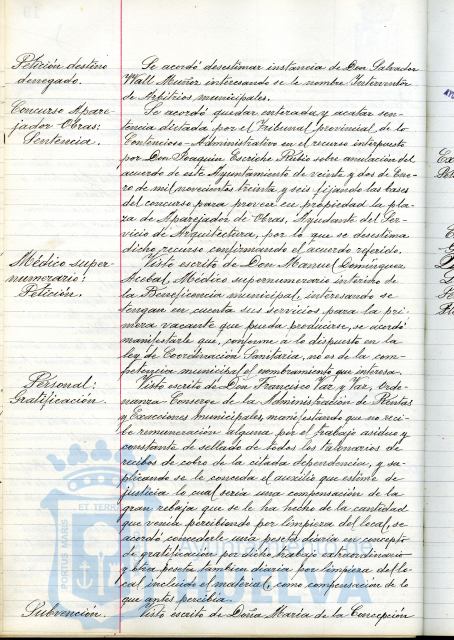 Petición destino
denegado.
Se acordó desestimar instancia de Don Salvador
Wall Muñoz interesando se le nombre Interventor
de Arbitrios municipales.
Concurso Apare-
jador Obras:
Sentencia.
Se acordó quedar enterada y acatar sen-
tencia dictada por el Tribunal provincial de lo
Contencioso-Administrativo en el recurso interpuesto
por Don Joaquín Escriche Rubio sobre anulación del
acuerdo de este Ayuntamiento de veinte y dos de Ene-
ro de mil novecientos treinta y seis fijando las bases
del concurso para proveer en propiedad la pla-
za de Aparejador de Obras, Ayudante del Ser-
vicio de Arquitectura, por lo que se desestima
dicho recurso confirmando el acuerdo referido.
Médico super-
numerario:
Petición.
Visto escrito de Don Manuel Domínguez
Médico supernumerario interino de
la Beneficencia municipal, interesando se
tengan en cuenta sus servicios para la pri-
mera vacante que pueda producirse, se acordó
manifestarle que, conforme a lo dispuesto en la
ley de Coordinación Sanitaria, no es de la com-
petencia municipal el nombramiento que interesa.
Personal:
Gratificación.
Visto escrito de Don Francisco Vaz y Vaz, Orde-
nanza Conserje de la Administración de Rentas
y Exacciones municipales, manifestando que no reci-
be remuneración alguna por el trabajo asiduo y
constante de sellado de todos los talonarios de
recibos de cobro de la citada dependencia, y su-
plicando se le conceda el auxilio que estime de
justicia lo cual sería una compensación de la
gran rebaja que se le ha hecho de la cantidad
que venía percibiendo por limpieza del local, se
acordó concederle una peseta diaria en concepto
de gratificación por dicho trabajo extraordinario
y otra peseta también diaria por limpieza del lo-
cal incluido el material, como compensación de lo
que antes percibía.
Subvención.
Visto escrito de Doña María de la Concepción
PORTUS MARIS
ET TERR